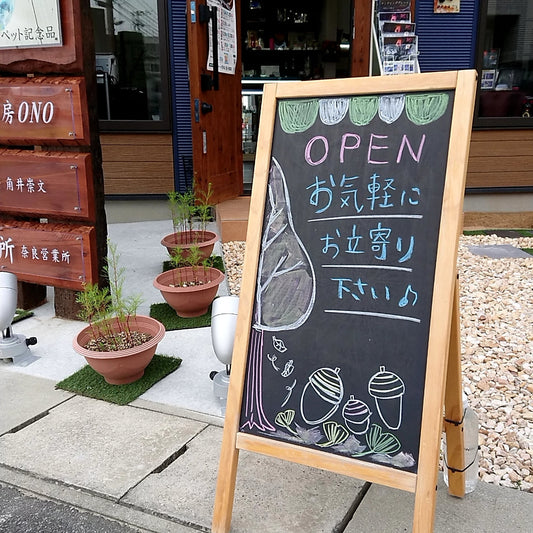 ペット記念品
房ONO
角井崇文
所 奈良営業所
OPEN
お気軽に
お立寄り
下さい♪
OPEN